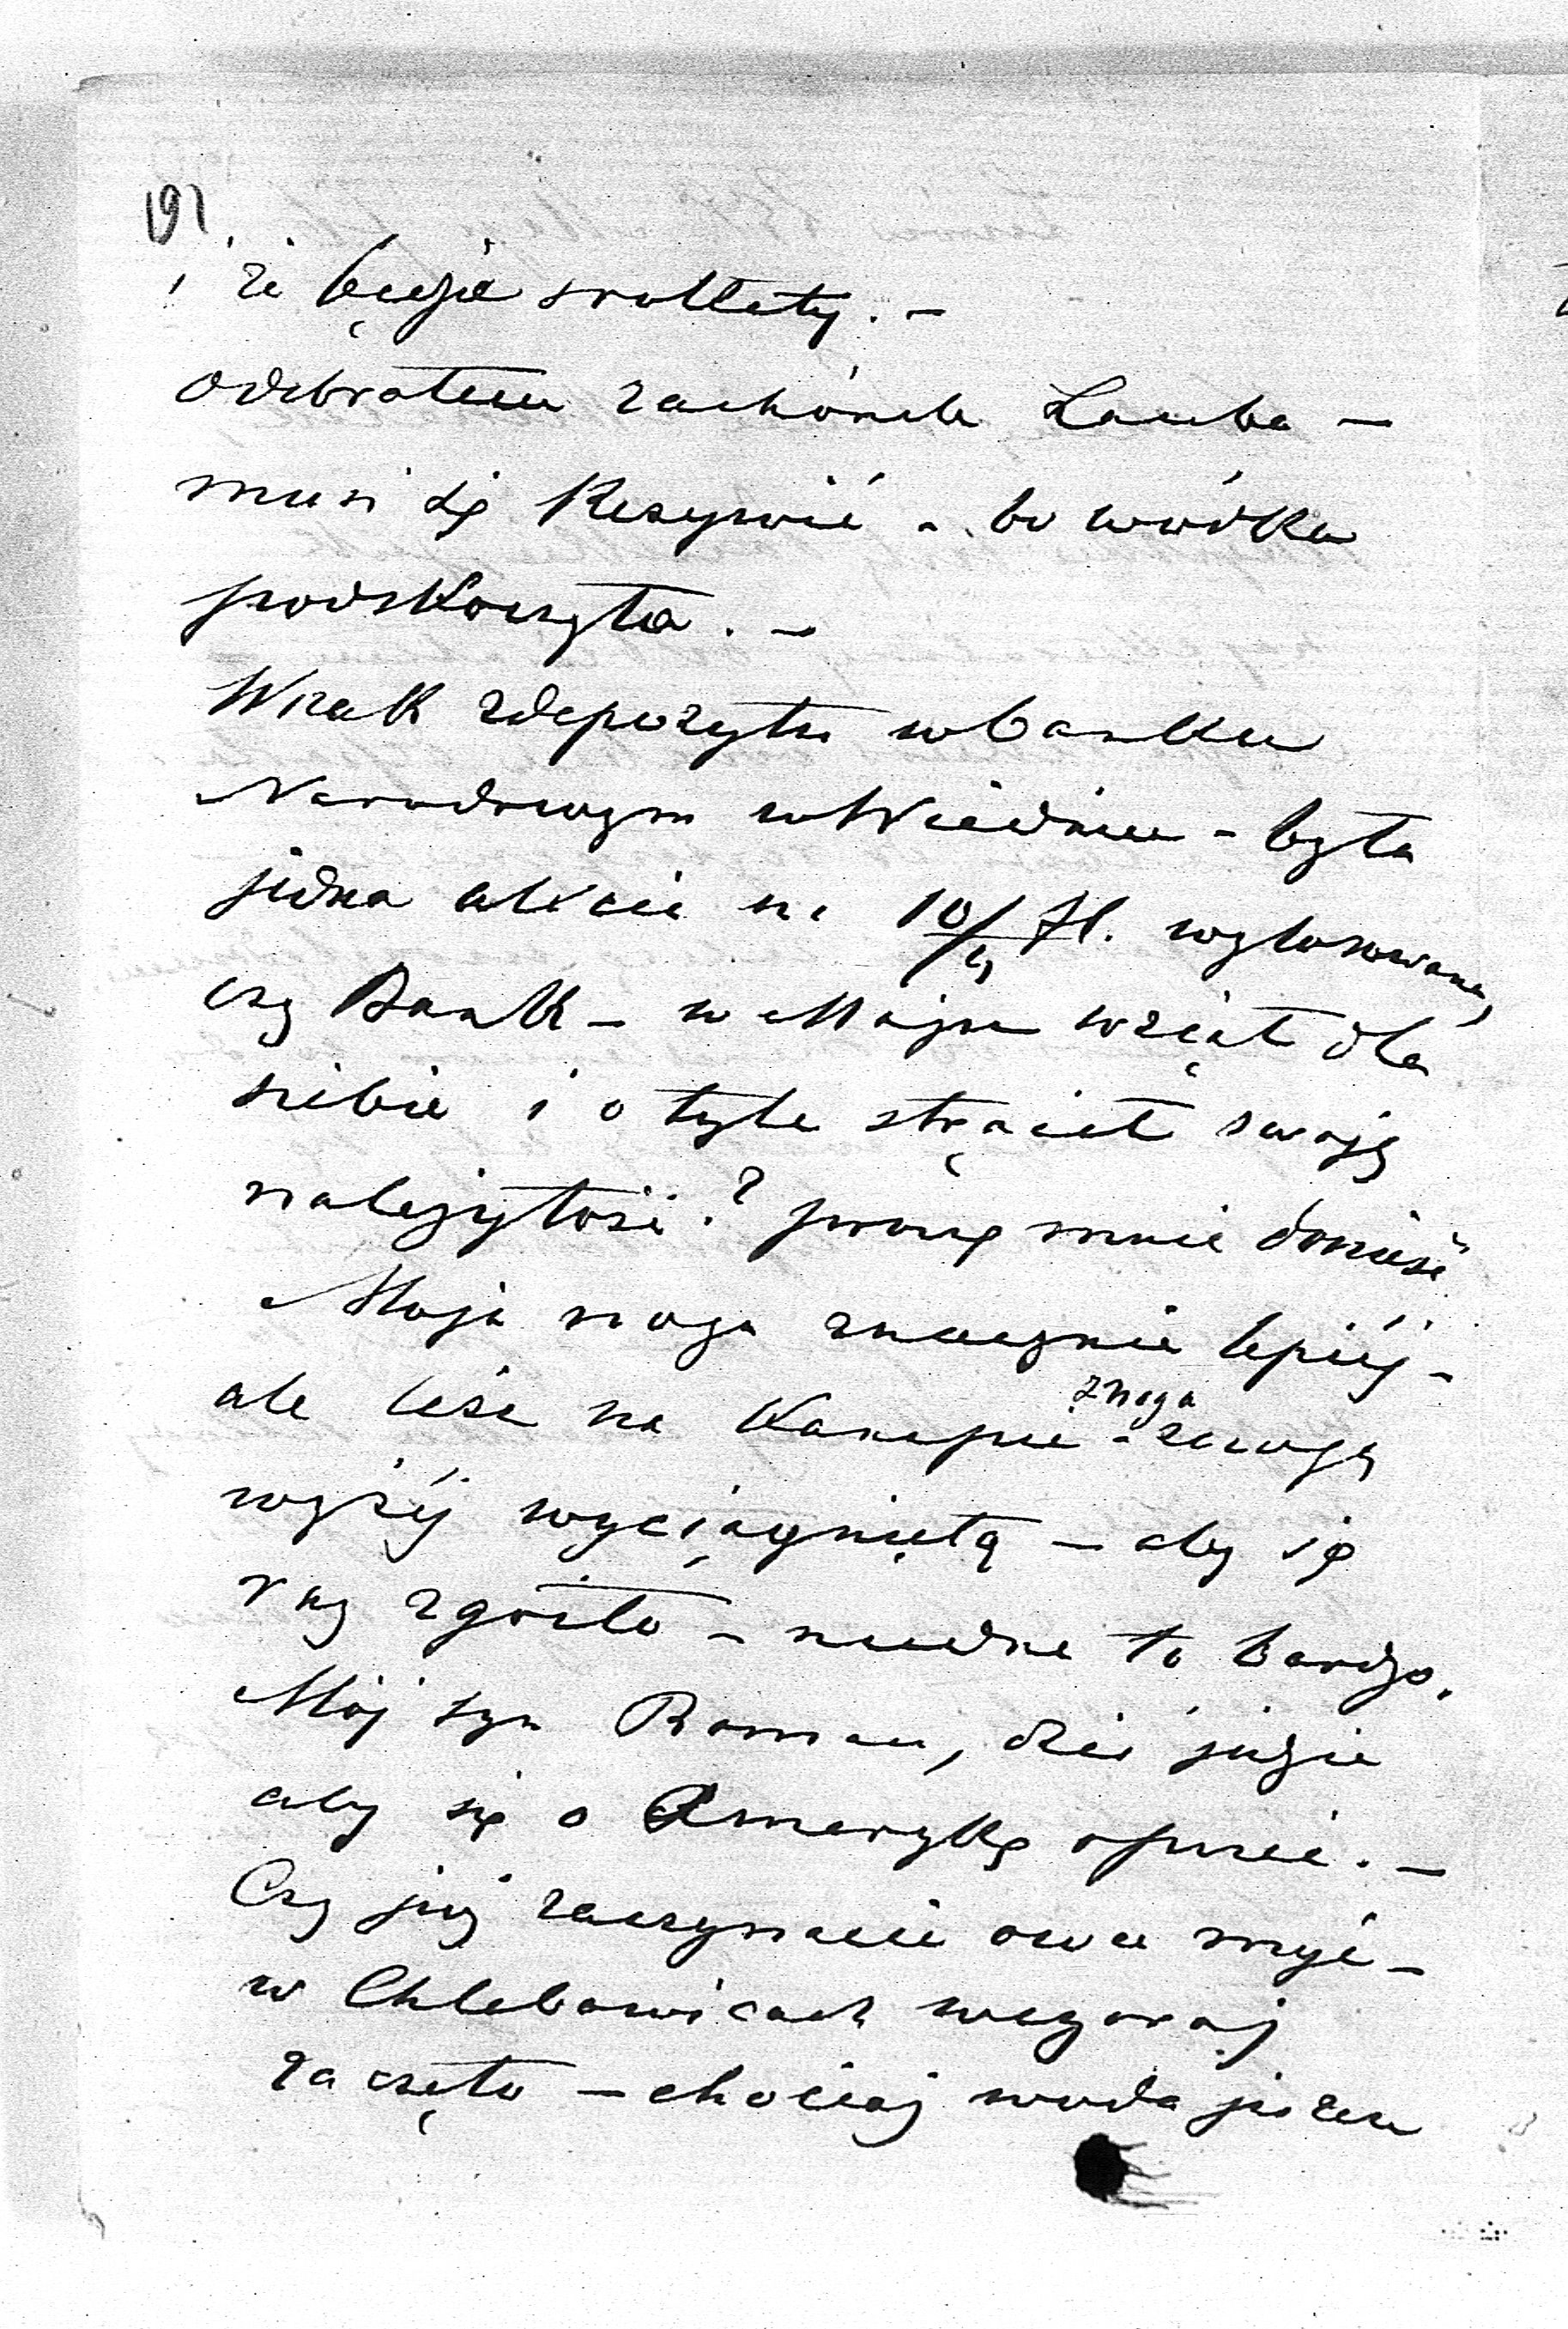 191.
i że będzie srokaty. –
Odebrałem rachónek Lauba –
musi się krzywić – bo wódka
podskoczyła. –
Wszak zdepozytu wbanku
Narodowym wWiedniu – była
jedna akcie na fl. wylosowana,
czy Bank – w Maju wziął dla
siebie i o tyle strącił swoję
należytość? proszę mnie donieść
Moja noga znacznie lepiéj –
ale leże na Kanapie – z nogą
z nogą
wyżéj wyciągniętą – aby się
raz zgoiło – nudne to bardzo.
Mój syn Roman, dziś jedzie
aby się o Amerykę oprzeć. –
Czy już zaczynacie owce myć –
w Chlebowicach wczoraj
zaczęto – chociaż woda jeszcze